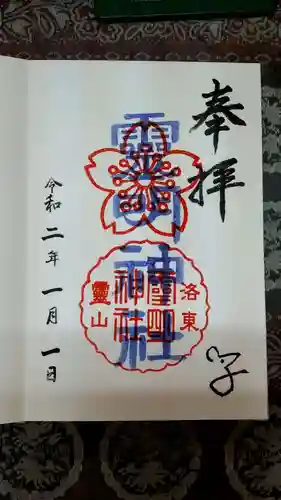 奉拝
靈明神社
洛東
靈明
神社
靈山
令和二年一月一日